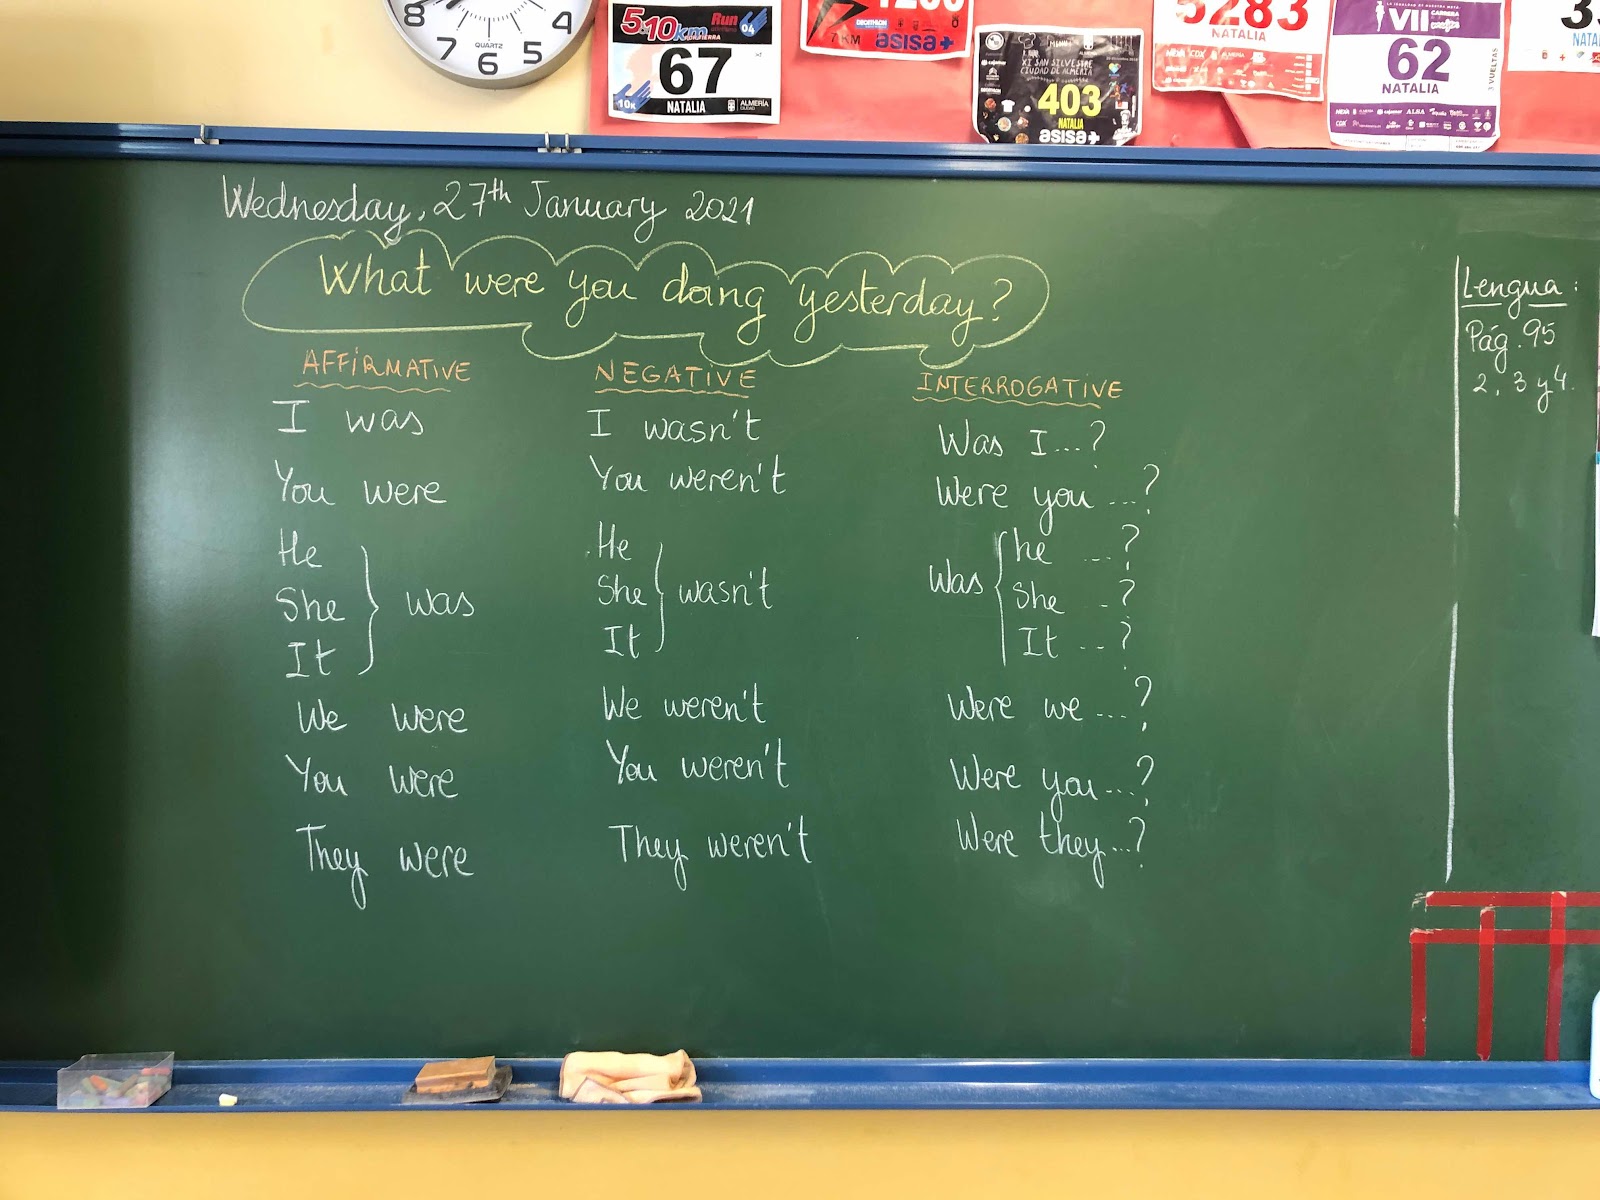 8 7 6 5 4
QUARTZ
5 10km Run
04
67
10K NATALIA ALMERÍA
CIUDAD
1200
DECATHLON
7 KM asisa+
XI SAN SILVESTRE
CIUDAD DE ALMERÍA
403
NATALIA
asisa+
5283
NATALIA
VII CARRERA
62
NATALIA
3 VUELTAS
Wednesday, 27th January 2021
What were you doing yesterday?
AFFIRMATIVE NEGATIVE INTERROGATIVE
I was I wasn't Was I...?
You were You weren't Were you ...?
He He he ...?
She } was She } wasn't Was { She ..?
It It It ...?
We were We weren't Were we ...?
You were You weren't Were you...?
They were They weren't Were they...?
Lengua:
Pág. 95
2, 3 y 4.